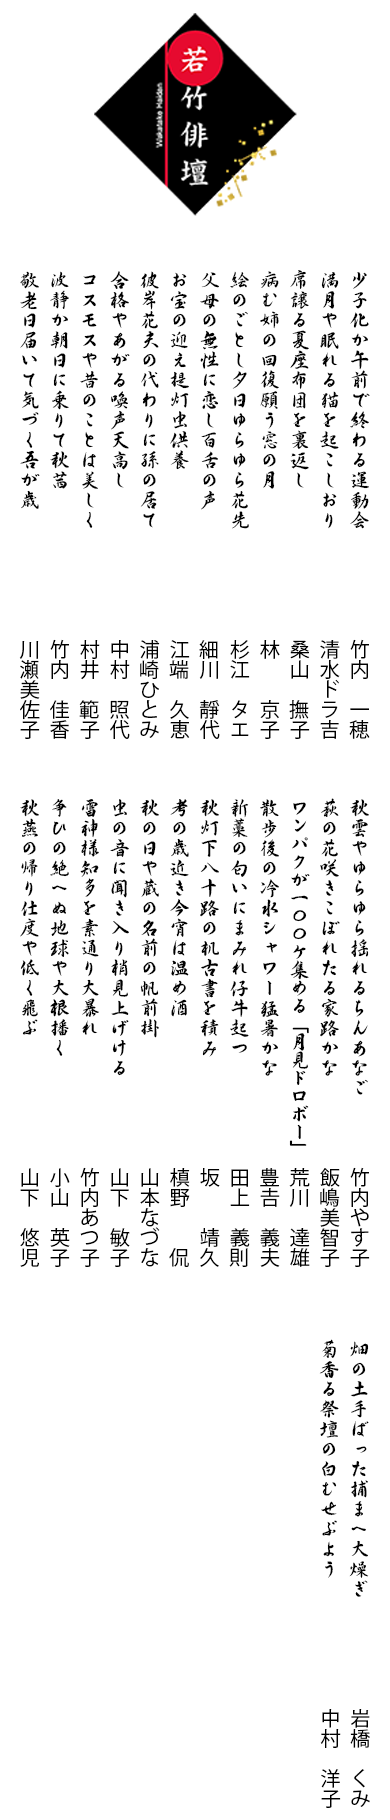 若竹俳壇
Wakatake Haidan
少子化か午前で終わる運動会
竹内 一穂
満月や眠れる猫を起こしおり
清水ドラ吉
席譲る夏座布団を裏返し
桑山 撫子
病む姉の回復願う窓の月
林 京子
絵のごとし夕日ゆらゆら花芒
杉江 タエ
父母の無性に恋し百舌の声
細川 靜代
お宝の迎え提灯虫供養
江端 久恵
彼岸花夫の代わりに孫の居て
浦崎ひとみ
合格やあがる喚声天高し
中村 照代
コスモスや昔のことは美しく
村井 範子
波静か朝日に乗りて秋茜
竹内 佳香
敬老日届いて気づく吾が歳
川瀬美佐子
秋雲やゆらゆら揺れるちんあなご
竹内やす子
萩の花咲きこぼれたる家路かな
飯嶋美智子
ワンパクが一〇〇ヶ集める「月見ドロボー」
荒川 達雄
散歩後の冷水シャワー猛暑かな
豊吉 義夫
新藁の匂いにまみれ仔牛起つ
田上 義則
秋灯下八十路の机古書を積み
坂 靖久
考の歳近き今宵は温め酒
槙野 侃
秋の日や蔵の名前の帆前掛
山本なづな
虫の音に聞き入り梢見上げける
山下 敏子
雷神様知多を素通り大暴れ
竹内あつ子
争ひの絶へぬ地球や大根播く
小山 英子
秋燕の帰り仕度や低く飛ぶ
山下 悠児
畑の土手ばった捕まへ大燥ぎ
岩橋 くみ
菊香る祭壇の白むせぶよう
中村 洋子